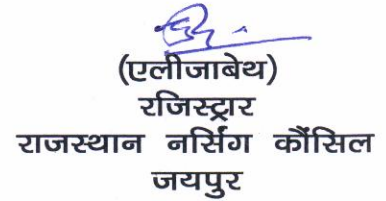 (एलीजाबेथ)
रजिस्ट्रार
राजस्थान नर्सिंग कौंसिल
जयपुर